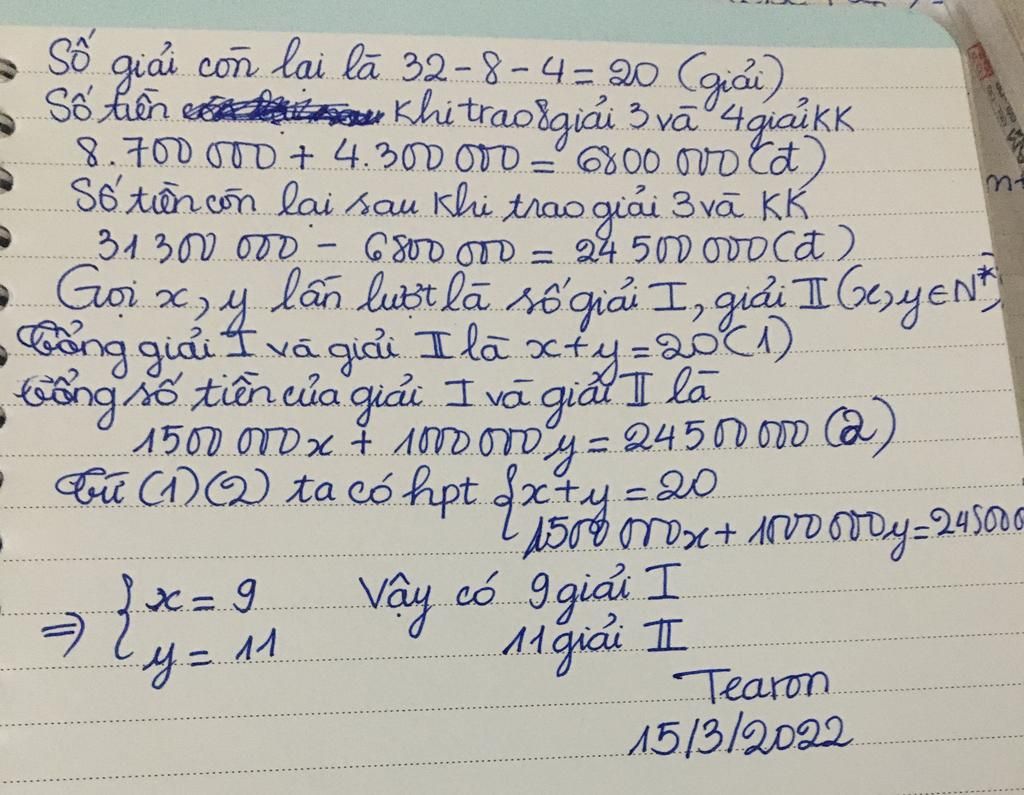 Số giải còn lại là 32 - 8 - 4 = 20 (giải)
Số tiền khi trao 8 giải 3 và 4 giải KK
8.700 000 + 4.300 000 = 6800 000 (đ)
Số tiền còn lại sau khi trao giải 3 và KK
31 300 000 - 6800 000 = 24 500 000 (đ)
Gọi x, y lần lượt là số giải I, giải II (x, y ∈ N*)
Tổng giải I và giải II là x + y = 20 (1)
Tổng số tiền của giải I và giải II là
1500 000x + 1000 000y = 24500 000 (2)
Từ (1) (2) ta có hpt { x + y = 20
1500 000x + 1000 000y = 245000
=> { x = 9 Vậy có 9 giải I
y = 11 11 giải II
Tearon
15/3/2022